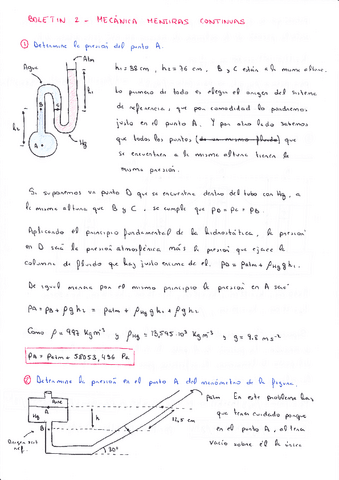 BOLETIN 2 - MECÁNICA MENSIRAS CONTINUAS
① Determine la presion del punto A.
Agua
Atm
h₁
h₂
B
C
A
Hg
h₁ = 38 cm, h₂ = 76 cm, B y C están a la misma altura.
Lo primero de todo es elegir el origen del sistema
de referencia, que por comodidad lo pondremos
justo en el punto A. Y por otro lado sabemos
que todos los puntos (de un mismo fluido) que
se encuentren a la misma altura tienen la
misma presión.
Si suponemos un punto D que se encuentre dentro del tubo con Hg, a
la misma altura que B y C, se cumple que
Aplicando el principio fundamental de la hidrostática, la presión
en D será la presión atmosférica más la presion que ejerce la
columna de fluido que hay justo encima de el. p_D = p_atm + ρ_Hg g h₁.
De igual manera por el mismo principio la presion en A será
p_A = p_B + ρ g h₂ = p_atm + ρ_Hg g h₁ + ρ g h₂
Como ρ = 997 Kg m⁻³ y ρ_Hg = 13,595·10³ Kg m⁻³ y g = 9,8 m s⁻²
p_A = p_atm + 58053,496 Pa
② Determine la presión en el punto A del manómetro de la figura.
Aire
A
Hg
B
h
30°
12,5 cm
Origen sist
ref.
p_atm
En este problema hay
que tener cuidado porque
en el punto A, al tener
vacio sobre él la única